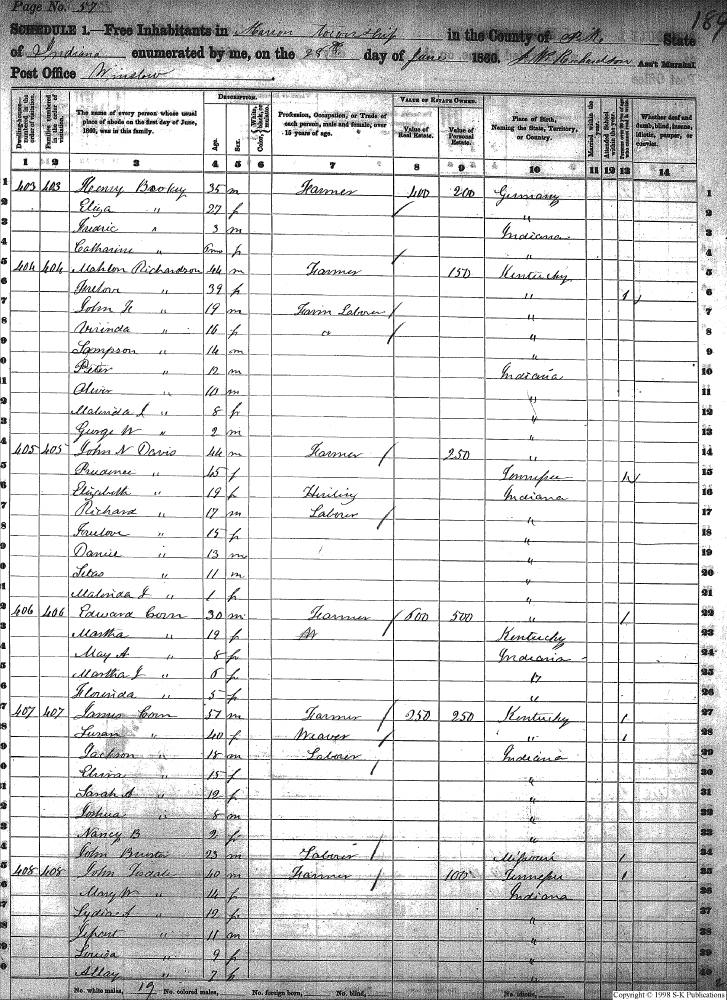 Page No. 57
187
SCHEDULE 1.—Free Inhabitants in Marion Township in the County of Pike State
of Indiana enumerated by me, on the 28th day of June 1860. J W Richardson Ass't Marshal.
Post Office Winslow
Dwelling-houses numbered in the order of visitation.
Families numbered in the order of visitation.
The name of every person whose usual place of abode on the first day of June, 1860, was in this family.
DESCRIPTION.
Age.
Sex.
Color, White, black, or mulatto.
Profession, Occupation, or Trade of each person, male and female, over 15 years of age.
VALUE OF ESTATE OWNED.
Value of Real Estate.
Value of Personal Estate.
Place of Birth, Naming the State, Territory, or Country.
Married within the year.
Attended School within the year.
Whether deaf and dumb, blind, insane, idiotic, pauper, or convict.
1 2 3 4 5 6 7 8 9 10 11 12 13 14
1 403 403 Henry 35 m Farmer 400 200 Germany 1
2 Eliza " 27 f " 2
3 Fredric " 3 m Indiana 3
4 Catharine " f " 4
5 404 404 Mahlon Richardson 44 m Farmer 150 Kentucky 5
6 Freelove " 39 f " 1 6
7 John " 19 m Farm Laborer " 7
8 " 16 f " " 8
9 Sampson " 14 m " 9
10 Peter " 12 m Indiana 10
11 Oliver " 10 m " 11
12 Malinda J " 8 f " 12
13 George W " 2 m " 13
14 405 405 John N Davis 44 m Farmer 250 " 14
15 Prudence " 45 f Tennessee 1 15
16 Elizabeth " 19 f Indiana 16
17 Richard " 17 m Laborer " 17
18 Freelove " 15 f " 18
19 Daniel " 13 m " 19
20 " 11 m " 20
21 Malinda J " 1 f " 21
22 406 406 Edward Corn 30 m Farmer 600 500 " 1 22
23 Martha " 19 f Kentucky 23
24 May A " 8 f Indiana 24
25 Martha J " 6 f " 25
26 Florinda " 5 f " 26
27 407 407 James Corn 57 m Farmer 250 250 Kentucky 1 27
28 Susan " 40 f Weaver " 1 28
29 Jackson " 18 m Laborer Indiana 29
30 " 15 f " 30
31 Sarah A " 12 f " 31
32 Joshua " 8 m " 32
33 Nancy B 2 f " 33
34 John 23 m Laborer Missouri 1 34
35 408 408 John 40 m Farmer 100 Tennessee 1 35
36 Mary W " 14 f Indiana 36
37 Lydia A " 12 f " 37
38 " 11 m " 38
39 Louisa " 9 f " 39
40 " 7 f " 40
No. white males, 19 No. colored males, No. foreign born, No. blind, No. idiotic,
Copyright © 1998 S-K Publications